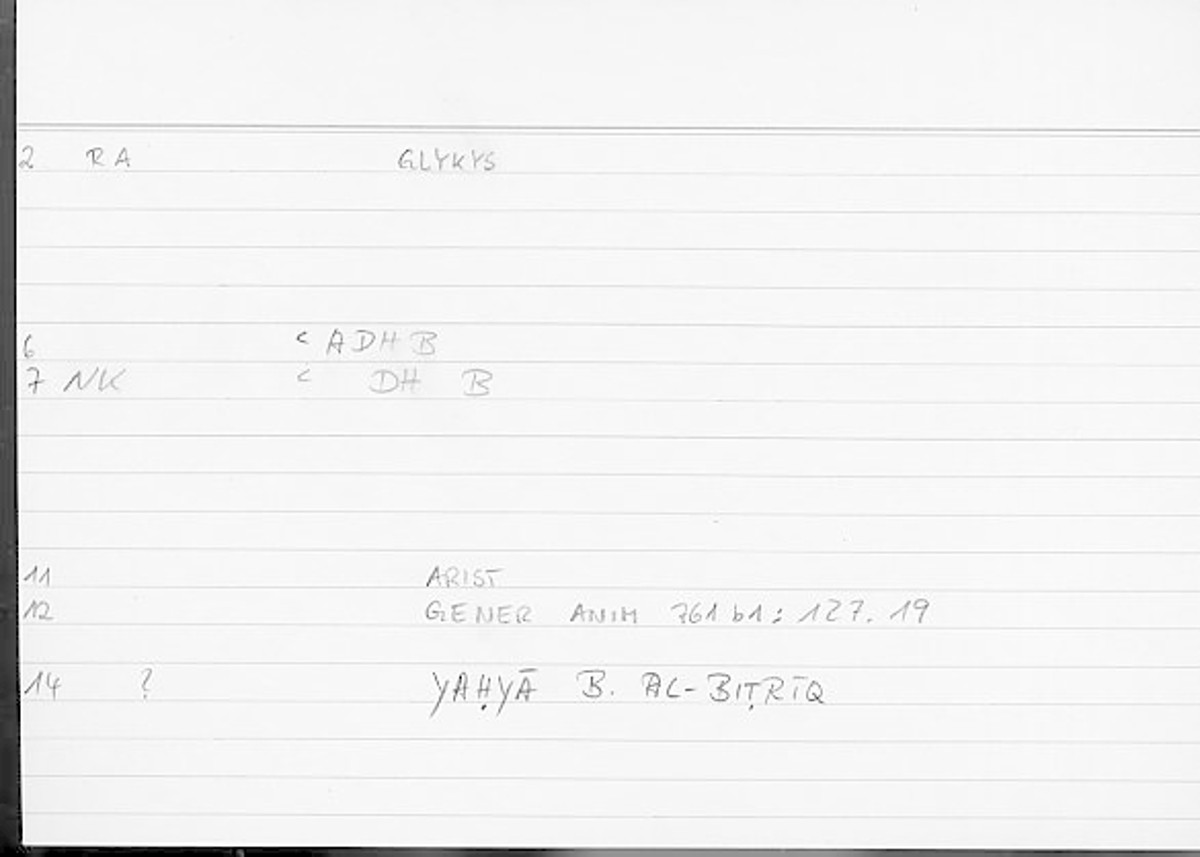 2 RA GLYKYS
6 < ADHB
7 NK < DH B
11 ARIST
12 GENER ANIM 761 b1 : 127. 19
14 ? YAḤYĀ B. AL-BIṬRĪQ